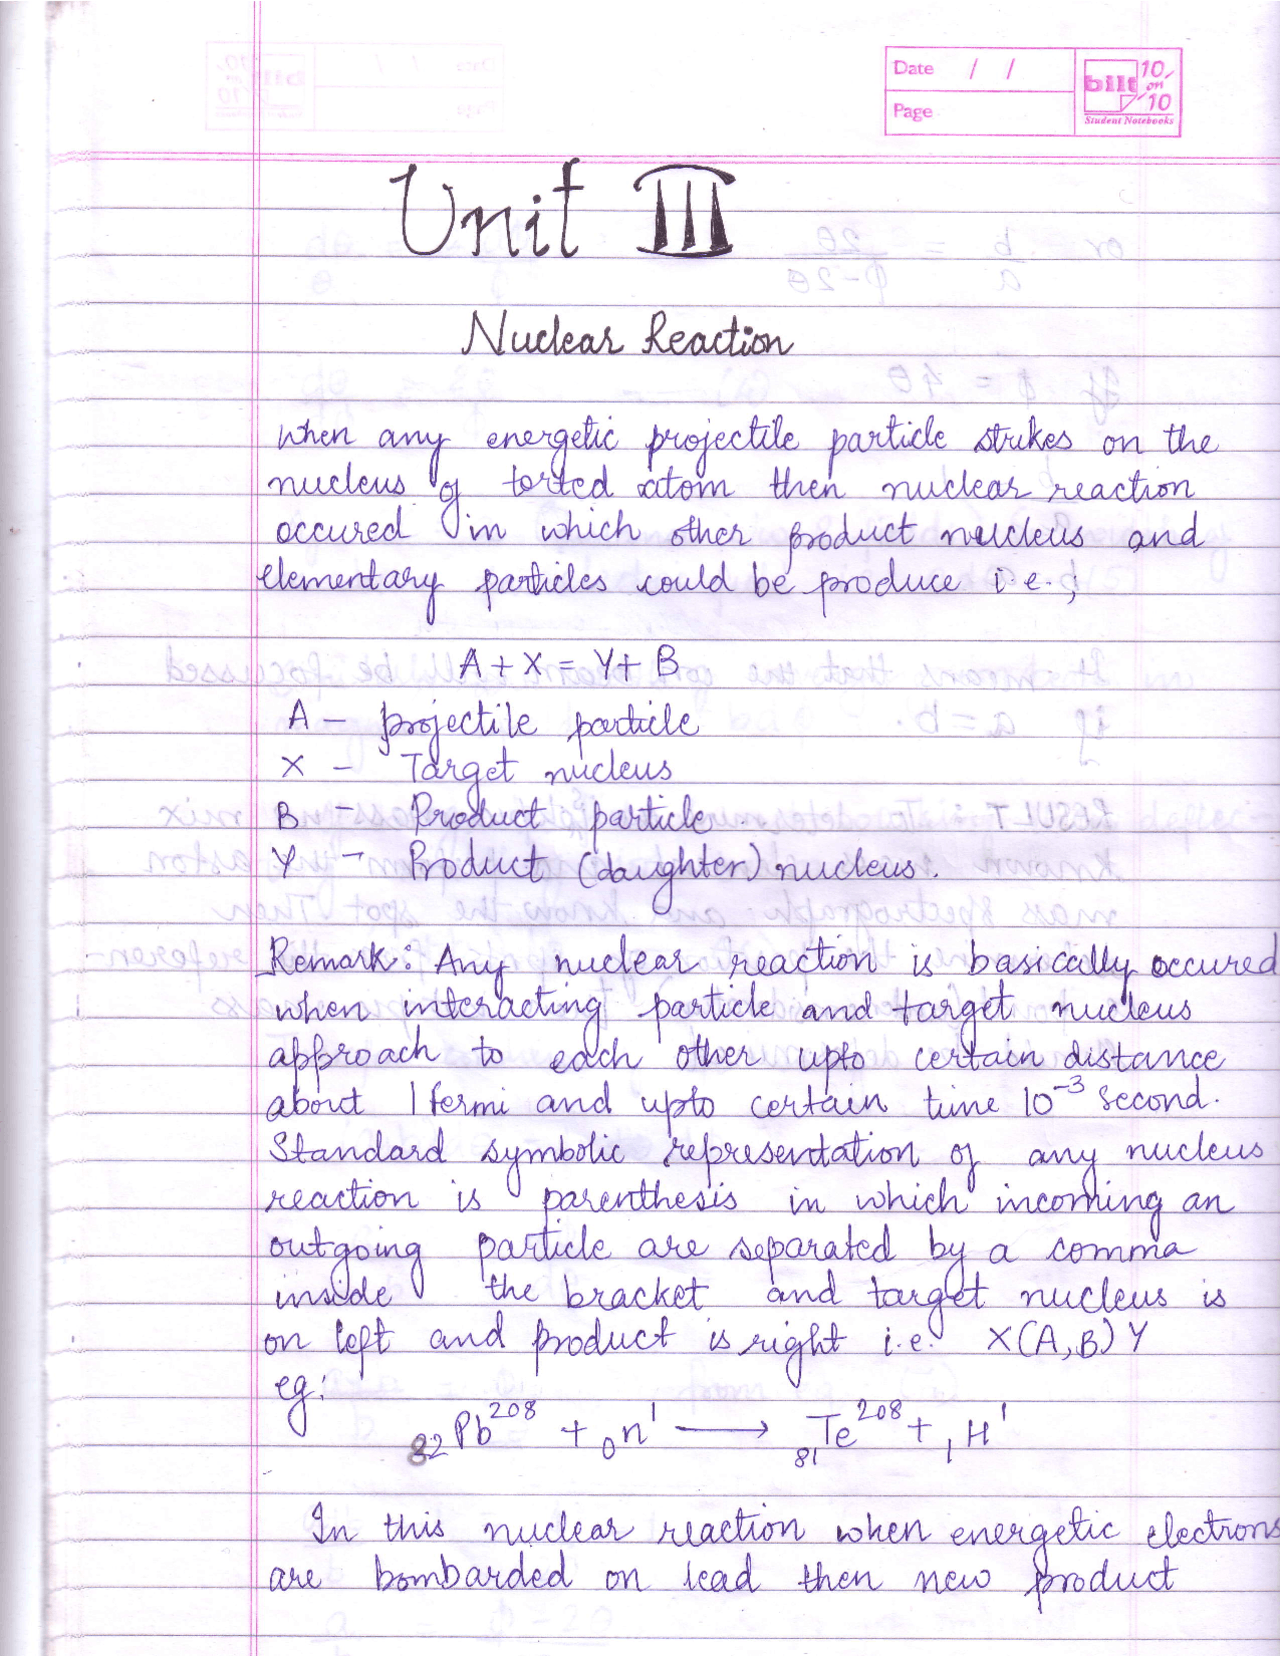 Date / /
Page
bilt 10 on 10
Student Notebooks
Unit III
Nuclear Reaction
When any energetic projectile particle strikes on the
nucleus of torted atom then nuclear reaction
occured in which other product nucleus and
elementary particles could be produce i.e.;
A + X = Y + B
A – projectile particle
X – Target nucleus
B – Product particle.
Y – Product (daughter) nucleus.
Remark: Any nuclear reaction is basically occured
when interacting particle and target nucleus
approach to each other upto certain distance
about 1 fermi and upto certain time 10⁻³ second.
Standard symbolic representation of any nucleus
reaction is parenthesis in which incoming an
outgoing particle are separated by a comma
inside the bracket and target nucleus is
on left and product is right i.e. X(A,B)Y
eg:
₈₂Pb²⁰⁸ + ₀n¹ ⟶ ₈₁Te²⁰⁸ + ₁H¹
In this nuclear reaction when energetic electrons
are bombarded on lead then new product